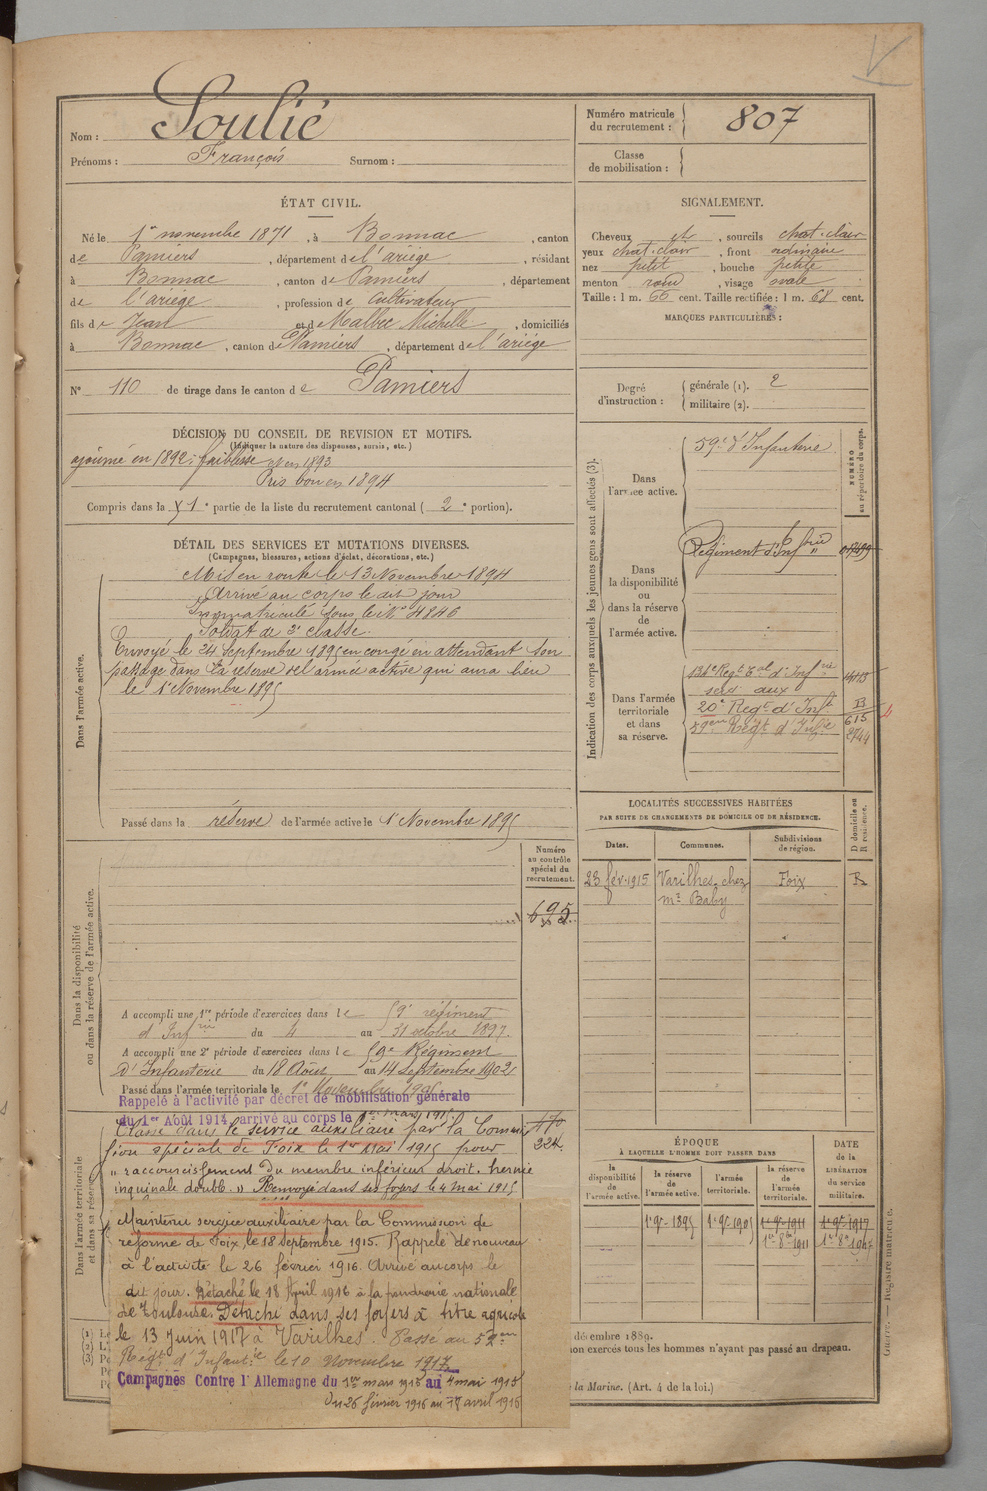 Nom : Soulié
Prénoms : François Surnom :
Numéro matricule du recrutement : 807
Classe de mobilisation :
ÉTAT CIVIL.
Né le 1er novembre 1871, à Bonnac, canton
de Pamiers, département de l'ariège, résidant
à Bonnac, canton de Pamiers, département
de l'ariège, profession de cultivateur
fils de Jean et de Malbec Michelle, domiciliés
à Bonnac, canton de Pamiers, département de l'ariège
N° 110 de tirage dans le canton de Pamiers
SIGNALEMENT.
Cheveux et, sourcils chat. clair
yeux chat. clair, front ordinaire
nez petit, bouche petite
menton rond, visage ovale
Taille : 1 m. 66 cent. Taille rectifiée : 1 m. 68 cent.
MARQUES PARTICULIÈRES :
Degré d'instruction : générale (1). 2
militaire (2).
DÉCISION DU CONSEIL DE REVISION ET MOTIFS.
(Indiquer la nature des dispenses, sursis, etc.)
ajourné en 1892 : faiblesse et en 1893
Pris bon en 1894
Compris dans la 1e partie de la liste du recrutement cantonal ( 2e portion).
DÉTAIL DES SERVICES ET MUTATIONS DIVERSES.
(Campagnes, blessures, actions d'éclat, décorations, etc.)
Dans l'armée active.
Mis en route le 13 Novembre 1894
Arrivé au corps le dit jour
Immatriculé sous le N° 4846
Soldat de 2e classe.
Envoyé le 24 Septembre 1895 en congé en attendant son
passage dans la réserve de l'armée active qui aura lieu
le 1 Novembre 1895
Passé dans la réserve de l'armée active le 1 Novembre 1895
Indication des corps auxquels les jeunes gens sont affectés (3).
NUMÉRO au répertoire du corps.
Dans l'armée active.
59e d'Infanterie
Dans la disponibilité ou dans la réserve de l'armée active.
Régiment d'Infrie
Dans l'armée territoriale et dans sa réserve.
134e Regt Tal d'Infrie
20e Regt d'Inft
615
59eme Regt d'Infie 2744
LOCALITÉS SUCCESSIVES HABITÉES
PAR SUITE DE CHANGEMENTS DE DOMICILE OU DE RÉSIDENCE.
Dates. Communes. Subdivisions de région. D domicile ou R résidence.
23 fév. 1915 Varilhes chez Foix R
Mr Baby
Dans la disponibilité ou dans la réserve de l'armée active.
Numéro au contrôle spécial du recrutement.
695
A accompli une 1re période d'exercices dans le 59e régiment
d'Infrie du 4 au 31 octobre 1897.
A accompli une 2e période d'exercices dans le 59e Régiment
d'Infanterie du 18 Août au 14 Septembre 1902
Passé dans l'armée territoriale le 1er Novembre
Rappelé à l'activité par décret de mobilisation générale
du 1er Août 1914, arrivé au corps le 1er mars 1915.
Dans l'armée territoriale et dans sa réserve
Classé dans le service auxiliaire par la Commis-
sion spéciale de Foix le 1er Mai 1915 pour
" raccourcissement du membre inférieur droit. hernie
inguinale double. " Renvoyé dans ses foyers le 4 mai 1915
Maintenu service auxiliaire par la Commission de
réforme de Foix, le 18 septembre 1915. Rappelé de nouveau
à l'activité le 26 février 1916. Arrivé au corps le
dit jour. Détaché le 18 Avril 1916 à la poudrerie nationale
de Toulouse. Détaché dans ses foyers à titre agricole
le 13 Juin 1917 à Varilhes. Passé au 59eme
Régt d'Infantie le 10 novembre 1917
Campagnes Contre l'Allemagne du 1er mars 1915 au 4 mai 1915
du 26 février 1916 au 17 avril 1916
ÉPOQUE
À LAQUELLE L'HOMME DOIT PASSER DANS
la disponibilité de l'armée active. la réserve de l'armée active. l'armée territoriale. la réserve de l'armée territoriale.
DATE de la LIBÉRATION du service militaire.
1er 9bre 1895 1er 9bre 1905 1er 9bre 1911 1er 9bre 1917
décembre 1889.
non exercés tous les hommes n'ayant pas passé au drapeau.
la Marine. (Art. 4 de la loi.)